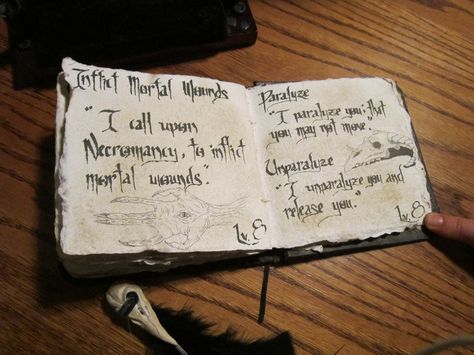 Inflict Mortal Wounds
"I call upon
Necromancy, to inflict
mortal wounds.
Lv. 8
Paralyze
"I paralyze you; that
you may not move."
Unparalyze
"I unparalyze you and
release you."
Lv. 8